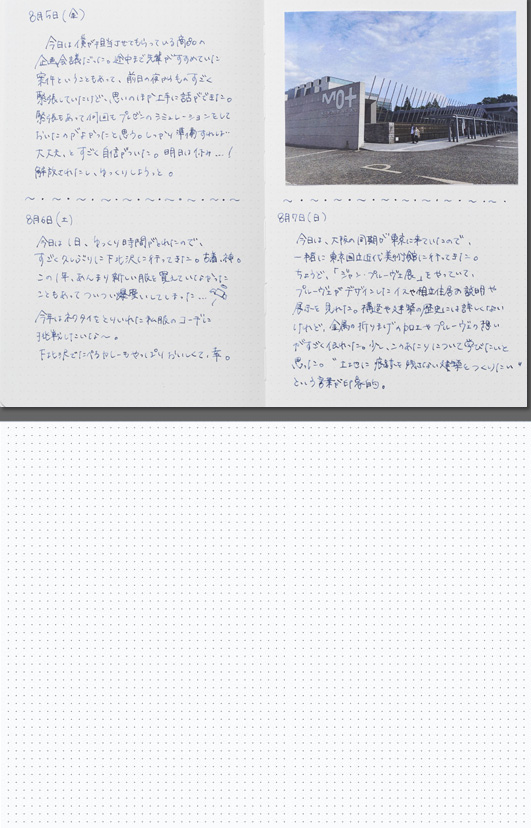 8月5日(金)
今日は僕が担当させてもらっている商品の
企画会議だった。途中まで先輩がすすめていた
案件ということもあって、前日の夜からものすごく
緊張していたけど、思いのほか上手に話ができました。
緊張もあって何回もプレゼンのシミュレーションをして
おいたのがよかったと思う。しっかり準備すれば
大丈夫、とすごく自信がついた。明日は休み…!
解放されたし、ゆっくりしようっと。
8月6日(土)
今日は1日、ゆっくり時間がとれたので、
すごく久しぶりに下北沢に行ってきました。古着、神。
この1年、あんまり新しい服を買えていなかった
こともあってついつい爆買いしてしまった…
今年はネクタイをとりいれた私服のコーデに
挑戦したいな〜。
下北沢で食べたカレーもやっぱりおいしくて、幸。
MOT
8月7日(日)
今日は、大阪の同期が東京に来ていたので、
一緒に東京国立近代美術館に行ってきました。
ちょうど、「ジャン・プルーヴェ展」をやっていて、
プルーヴェがデザインしたイスや組立住居の説明や
展示を見れた。構造や建築の歴史には詳しくない
けれど、金属の折りまげの加工やプルーヴェの想い
がすごく伝わった。少し、このあたりについて学びたいと
思った。"土地に痕跡を残さない建築をつくりたい"
という言葉が印象的。